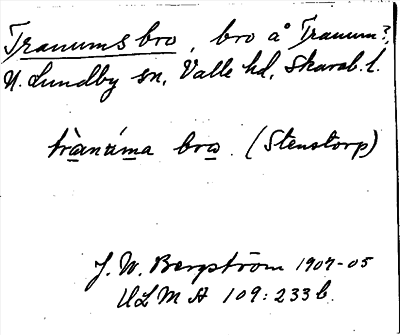 Tranums bro, bro å Tranum?,
N. Lundby sn, Valle hd, Skarab. l.
trànáma bro. (Stenstorp)
J. W. Bergström 1904-05
ULMA 109:233b.